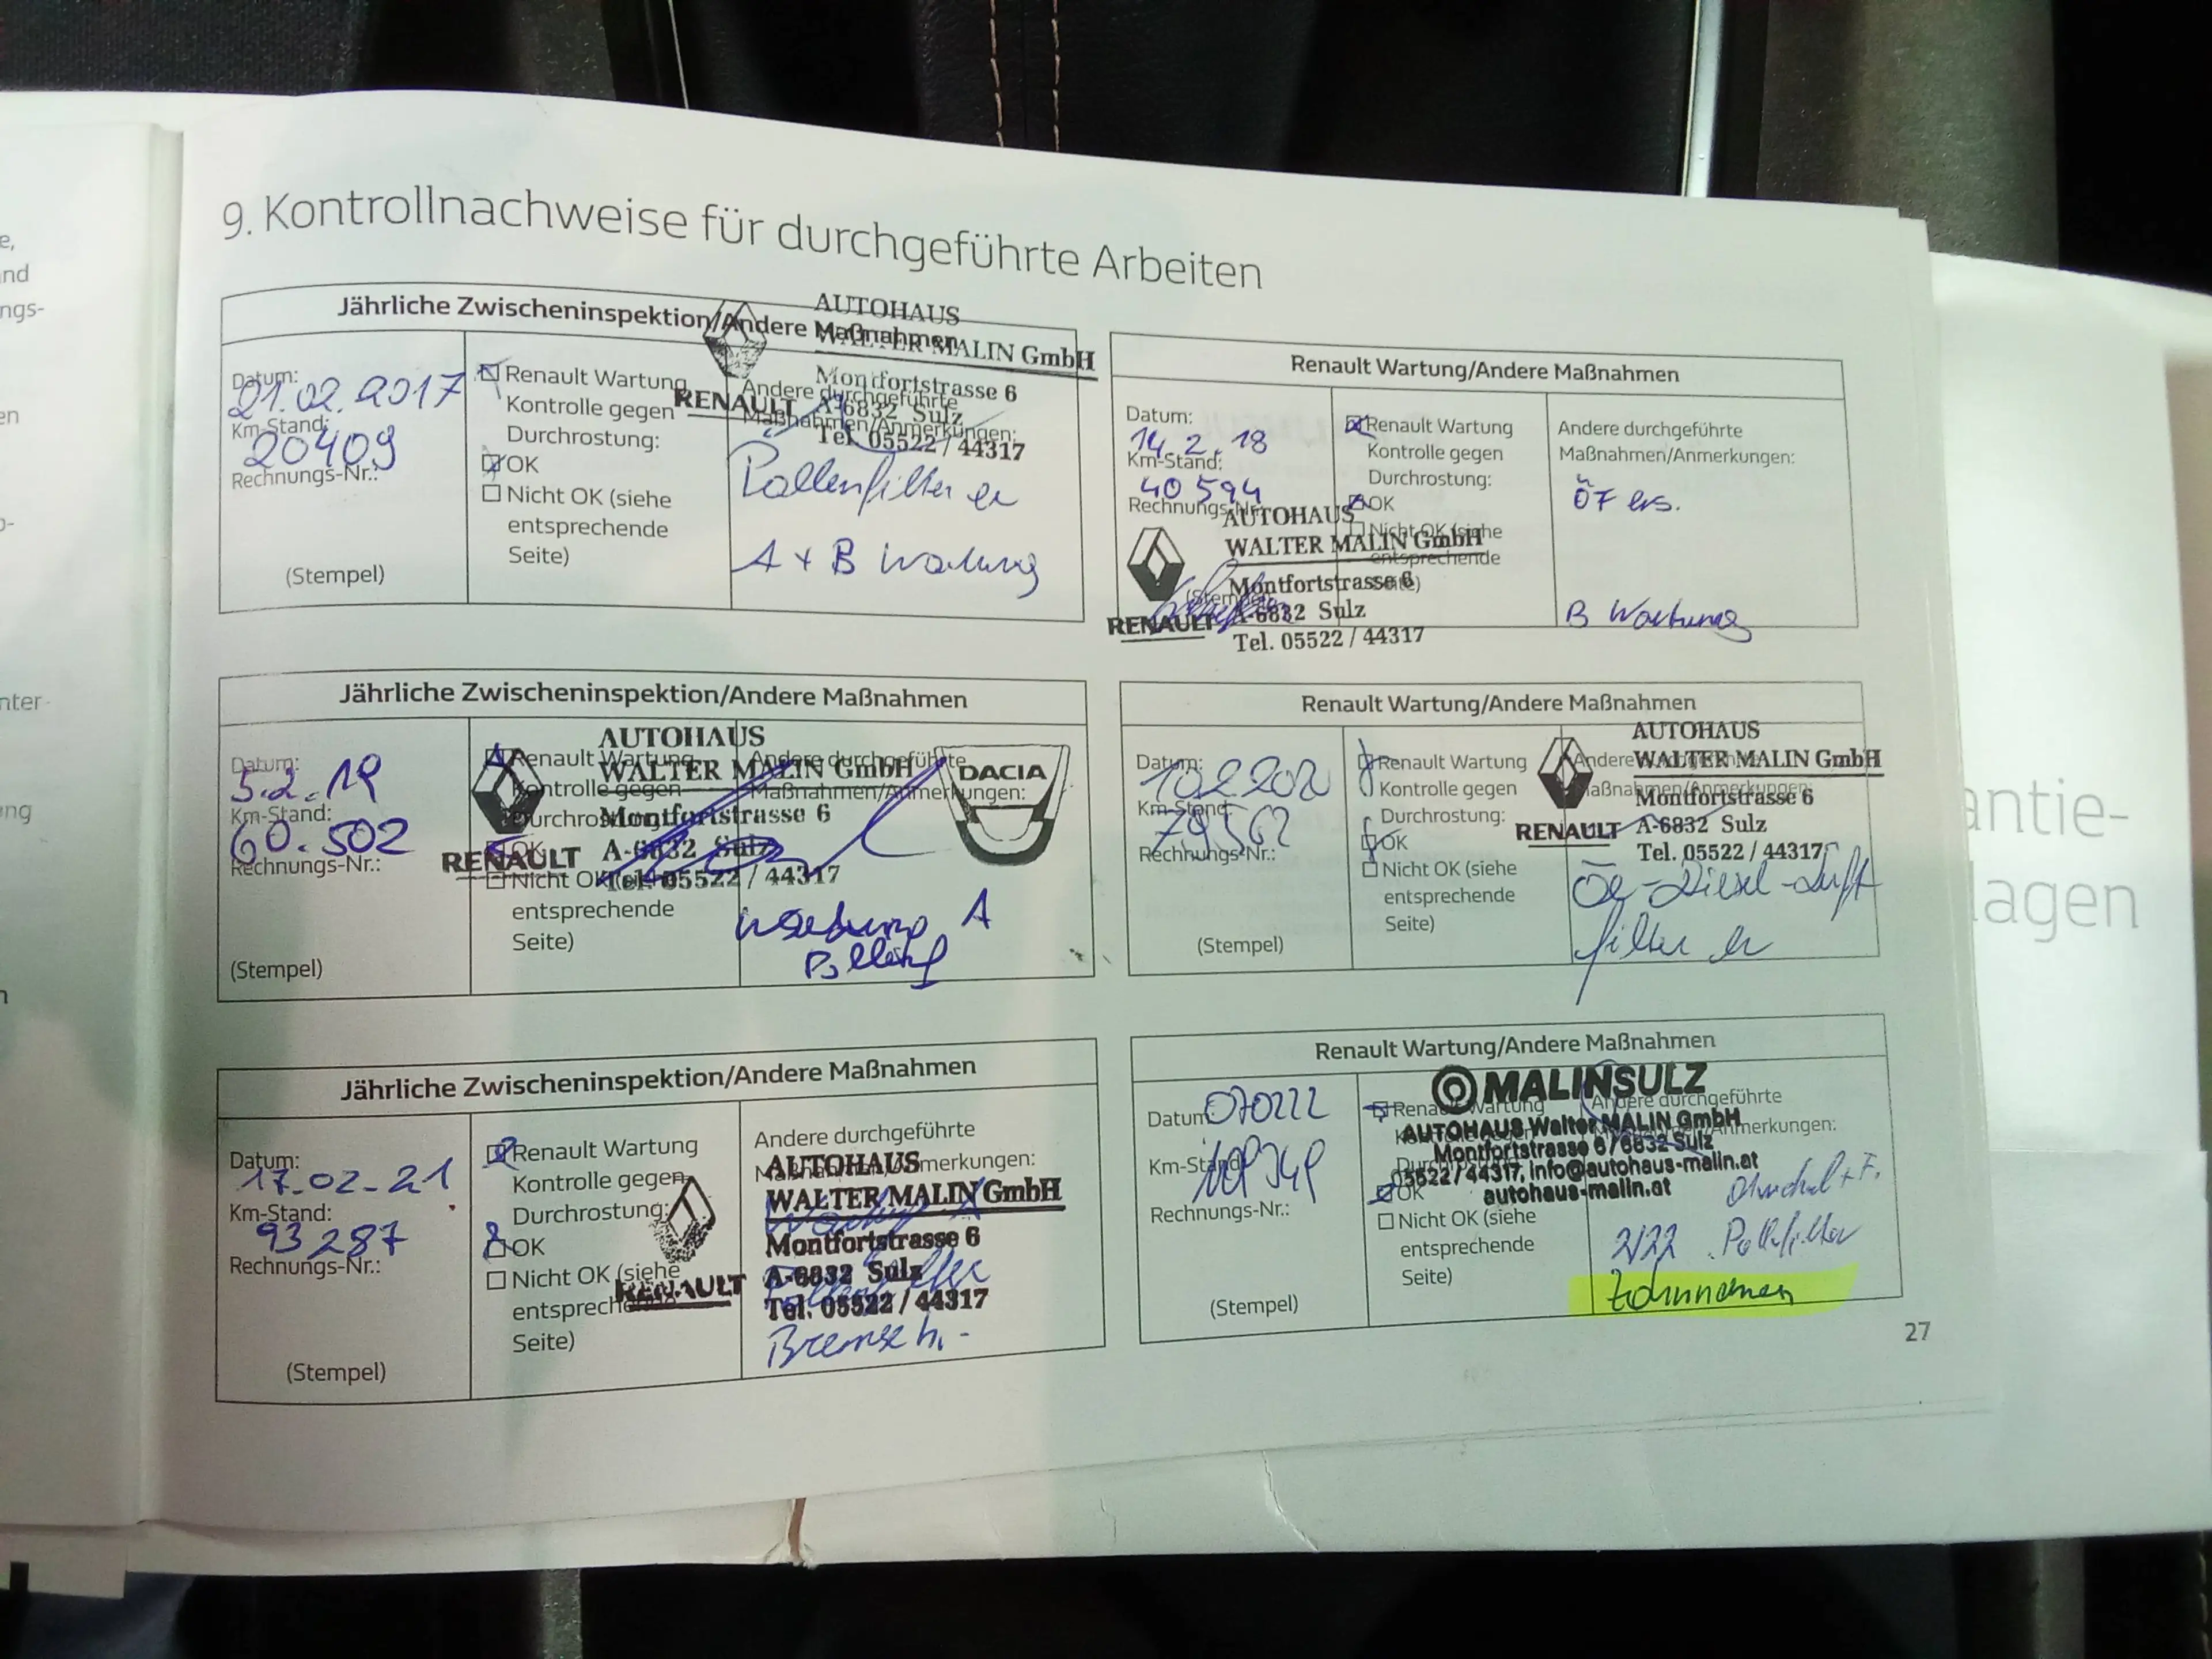 9. Kontrollnachweise für durchgeführte Arbeiten
Jährliche Zwischeninspektion/Andere Maßnahmen
Datum:
21.02.2017
Km-Stand:
20409
Rechnungs-Nr.:
(Stempel)
Renault Wartung
Kontrolle gegen
Durchrostung:
OK
Nicht OK (siehe
entsprechende
Seite)
Andere durchgeführte
Maßnahmen/Anmerkungen:
AUTOHAUS
WALTER MALIN GmbH
Montfortstrasse 6
A-6832 Sulz
Tel. 05522 / 44317
RENAULT
Pollenfilter er
A + B Wartung
Renault Wartung/Andere Maßnahmen
Datum:
14.2.18
Km-Stand:
40 594
Rechnungs-Nr.:
Renault Wartung
Kontrolle gegen
Durchrostung:
OK
Nicht OK (siehe
entsprechende
Andere durchgeführte
Maßnahmen/Anmerkungen:
ÖF ers.
B Wartung
AUTOHAUS
WALTER MALIN GmbH
Montfortstrasse 6
A-6832 Sulz
Tel. 05522 / 44317
RENAULT
Jährliche Zwischeninspektion/Andere Maßnahmen
Datum:
5.2.19
Km-Stand:
60.502
Rechnungs-Nr.:
(Stempel)
Renault Wartung
Kontrolle gegen
Durchrostung:
OK
Nicht OK (siehe
entsprechende
Seite)
Andere durchgeführte
Maßnahmen/Anmerkungen:
AUTOHAUS
WALTER MALIN GmbH
Montfortstrasse 6
A-6832 Sulz
Tel. 05522 / 44317
RENAULT
DACIA
Wartung A
Renault Wartung/Andere Maßnahmen
Datum:
Km-Stand:
79562
Rechnungs-Nr.:
(Stempel)
Renault Wartung
Kontrolle gegen
Durchrostung:
OK
Nicht OK (siehe
entsprechende
Seite)
Andere
Maßnahmen/Anmerkungen:
AUTOHAUS
WALTER MALIN GmbH
Montfortstrasse 6
A-6832 Sulz
Tel. 05522 / 44317
RENAULT
-Diesel-Luft
filter er
Jährliche Zwischeninspektion/Andere Maßnahmen
Datum:
17.02-21
Km-Stand:
93287
Rechnungs-Nr.:
(Stempel)
Renault Wartung
Kontrolle gegen
Durchrostung:
OK
Nicht OK (siehe
entsprechende
Seite)
Andere durchgeführte
Maßnahmen/Anmerkungen:
AUTOHAUS
WALTER MALIN GmbH
Montfortstrasse 6
A-6832 Sulz
Tel. 05522 / 44317
RENAULT
Renault Wartung/Andere Maßnahmen
Datum:
070222
Km-Stand:
109349
Rechnungs-Nr.:
(Stempel)
Renault Wartung
OK
Nicht OK (siehe
entsprechende
Seite)
Andere durchgeführte
MALINSULZ
AUTOHAUS Walter MALIN GmbH
Montfortstrasse 6 / 6832 Sulz
05522 / 44317, info@autohaus-malin.at
autohaus-malin.at
2/22
27
antie-
lagen